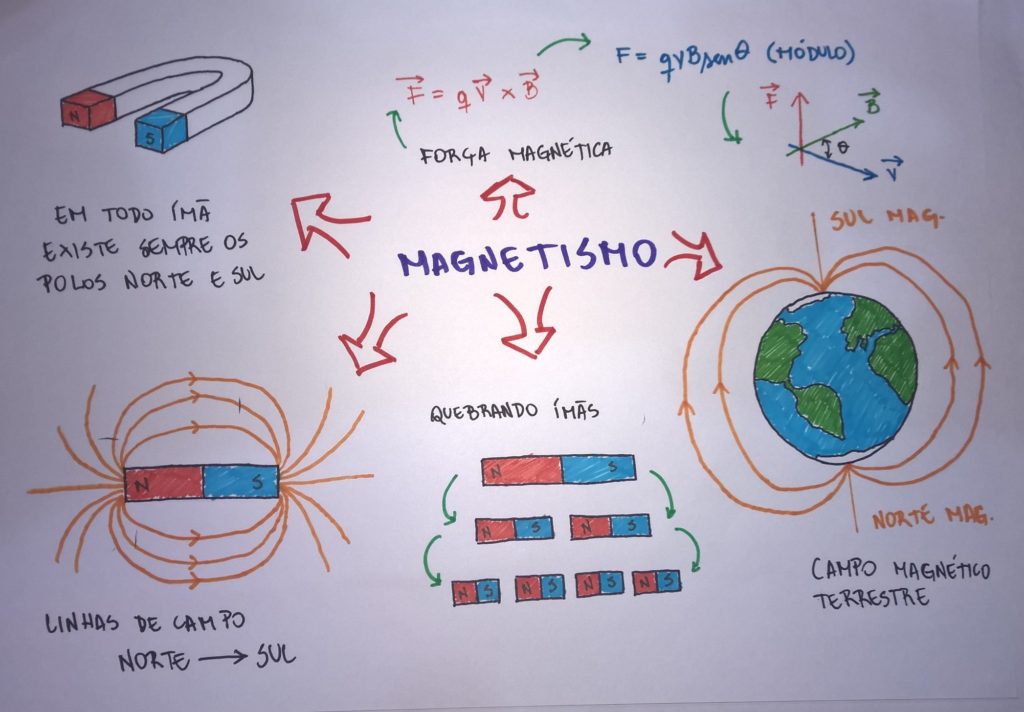 N
S
EM TODO ÍMÃ
EXISTE SEMPRE OS
POLOS NORTE E SUL
F = q V x B
FORÇA MAGNÉTICA
F = qVBsenθ (MÓDULO)
F
B
θ
V
MAGNETISMO
SUL MAG.
NORTE MAG.
CAMPO MAGNÉTICO
TERRESTRE
QUEBRANDO ÍMÃS
N S
N S N S
N S N S N S N S
N S
LINHAS DE CAMPO
NORTE → SUL